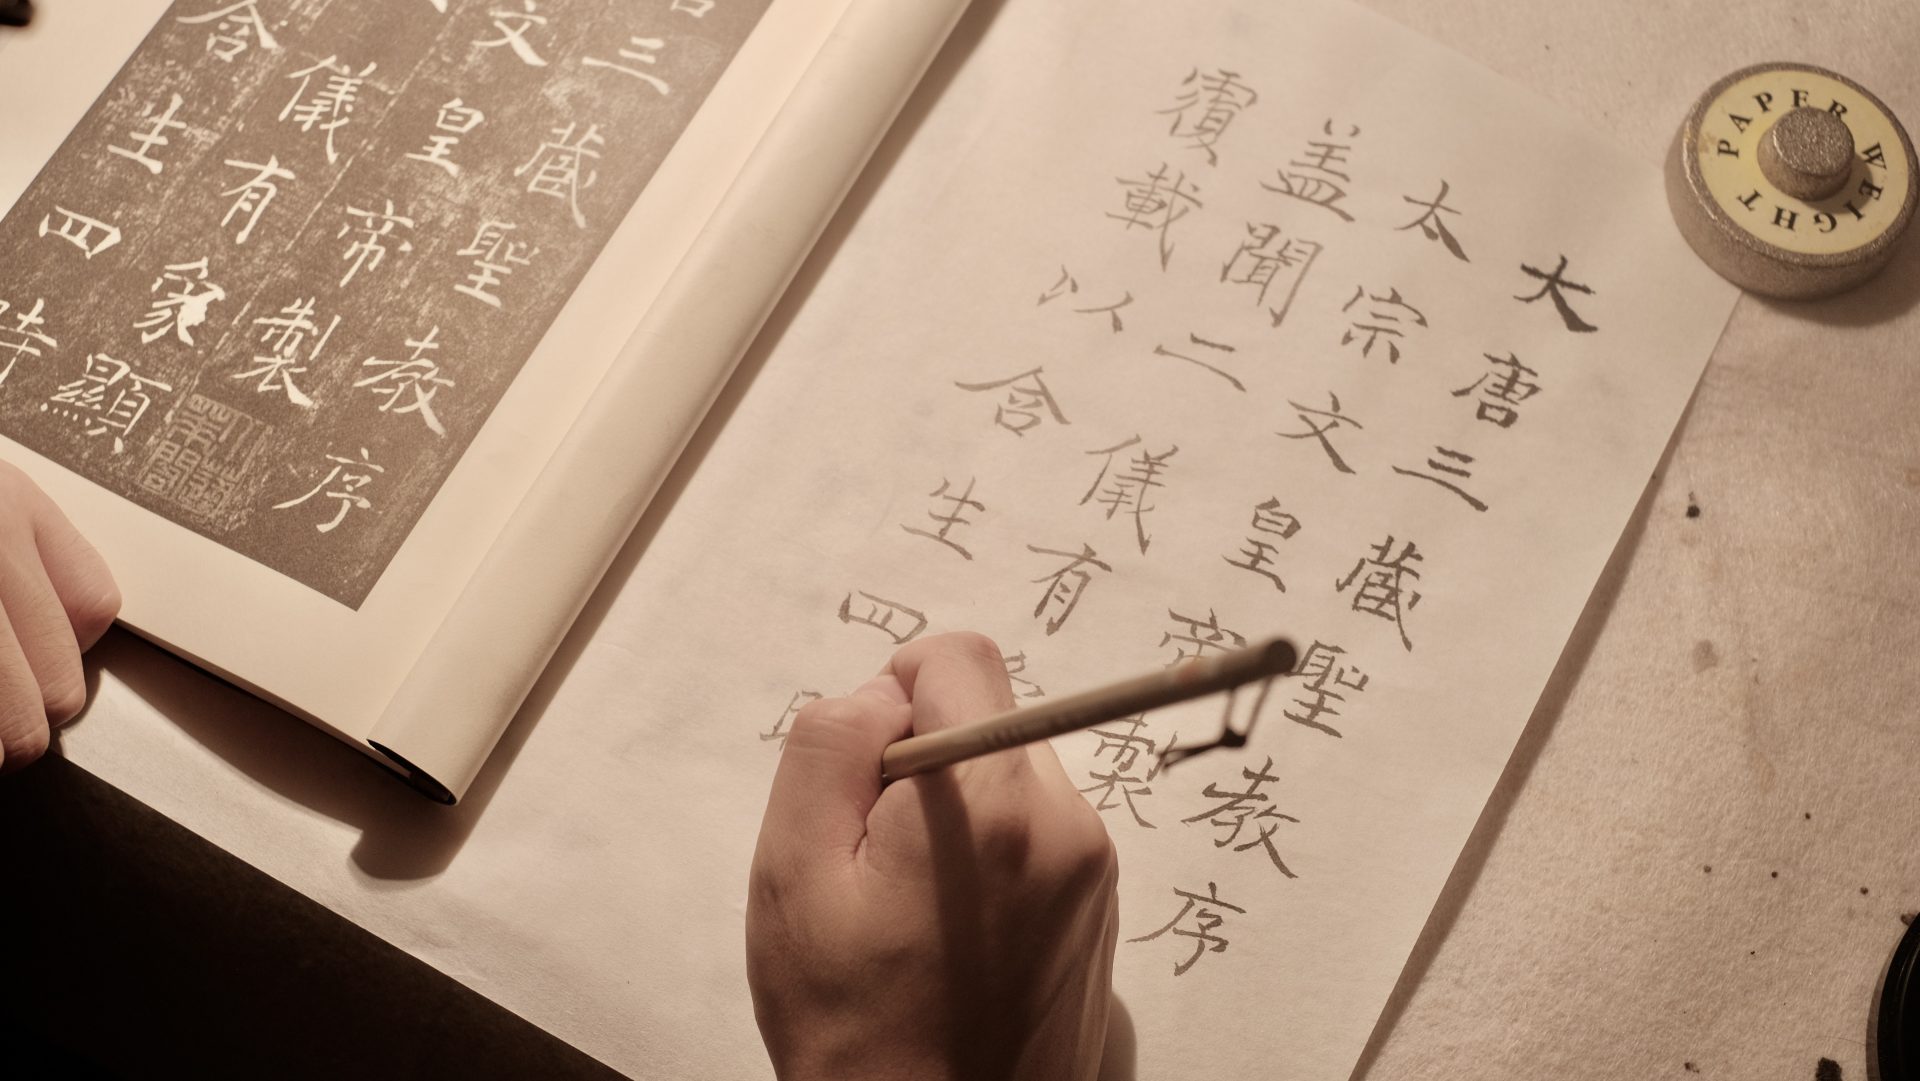 三藏聖教序
文皇帝製
儀有象顯
含生四時
大唐三藏聖教序
太宗文皇帝製
盖聞二儀有
覆載以含生四
PAPER WEIGHT